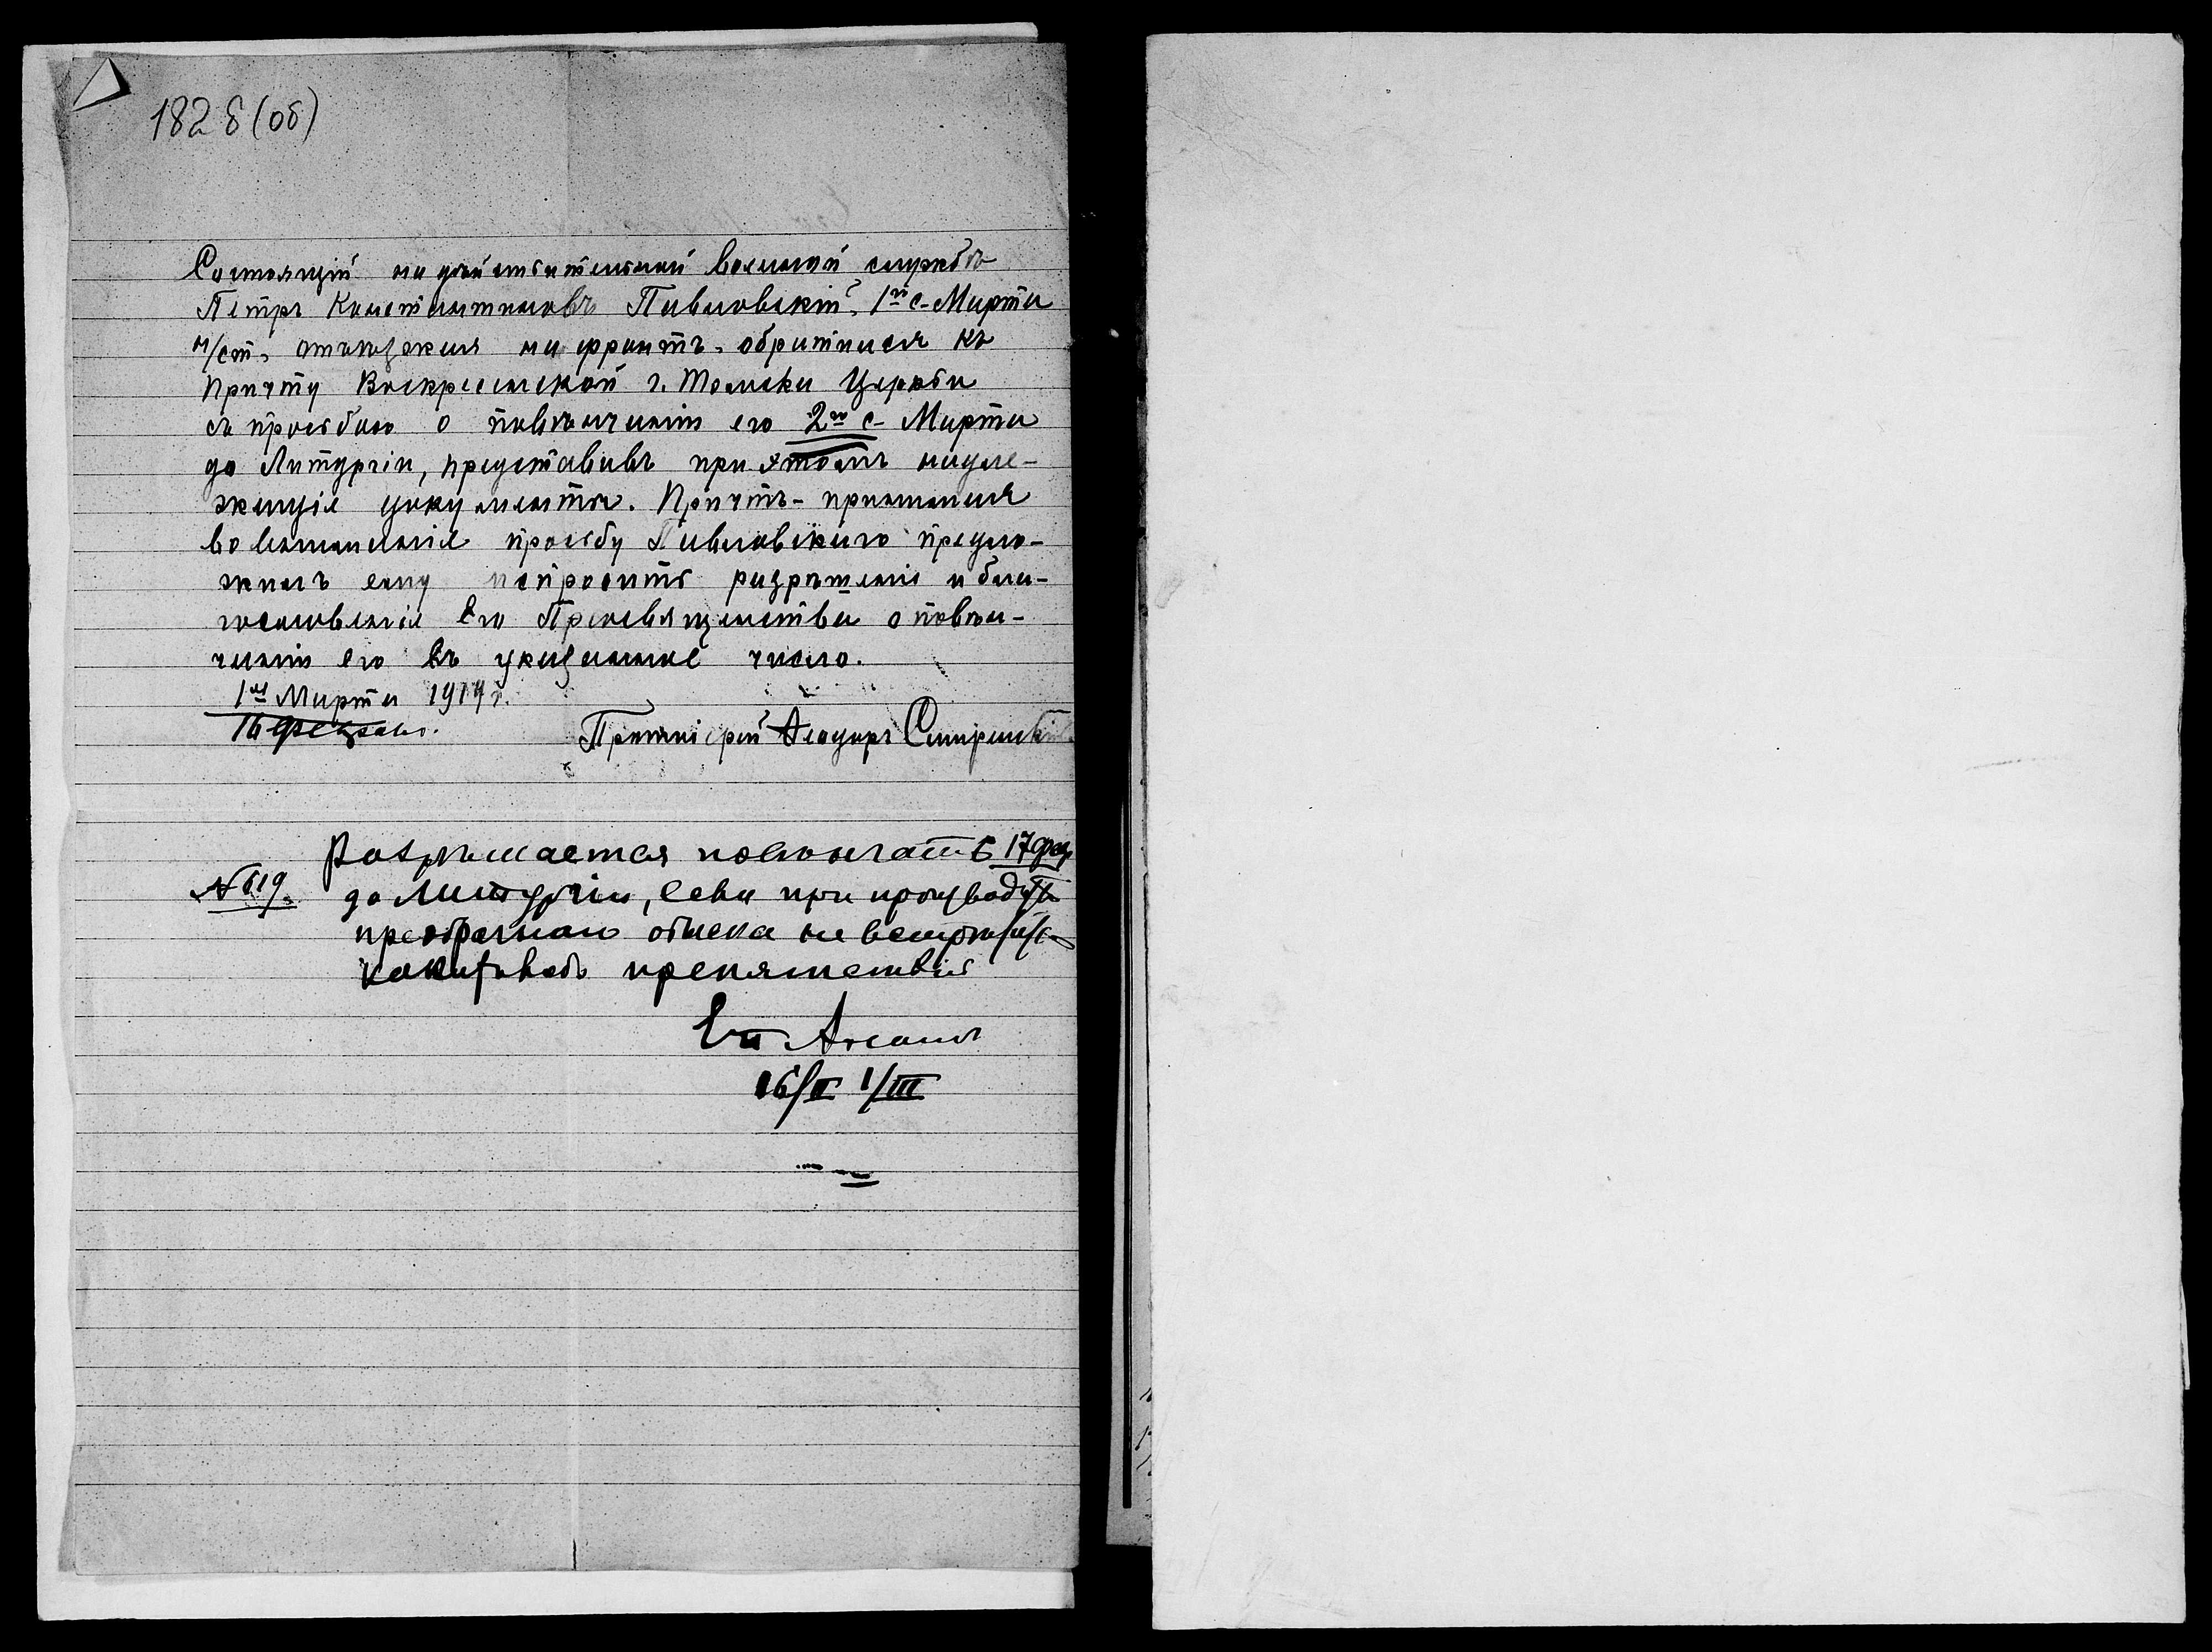 182 б (об)
Состоящій на дѣйствительной военной службѣ
Петръ Константиновъ Павловскій, 1го с. Марта
н/ст. отъѣзжая на фронтъ, обратился къ
причту Воскресенской г. Томска Церкви
съ просьбою о повѣнчаніи его 2го с. Марта
до Литургіи, представивъ при этомъ надле-
жащіе документы. Причтъ - принимая
во вниманіе просьбу Павловскаго предло-
жилъ ему испросить разрѣшенія и бла-
гословенія Его Преосвященства о повѣн-
чаніи его въ указанное число.
1го Марта 1919 г.
16 февраля.
Протоіерей Ѳеодоръ Смиренскій
Разрѣшается повѣнчать 17 февр
№ 619. до Литургіи, если при производствѣ
предбрачнаго обыска не встрѣтится
какихъ либо препятствій
Еп Анатолій
16/II 1/III